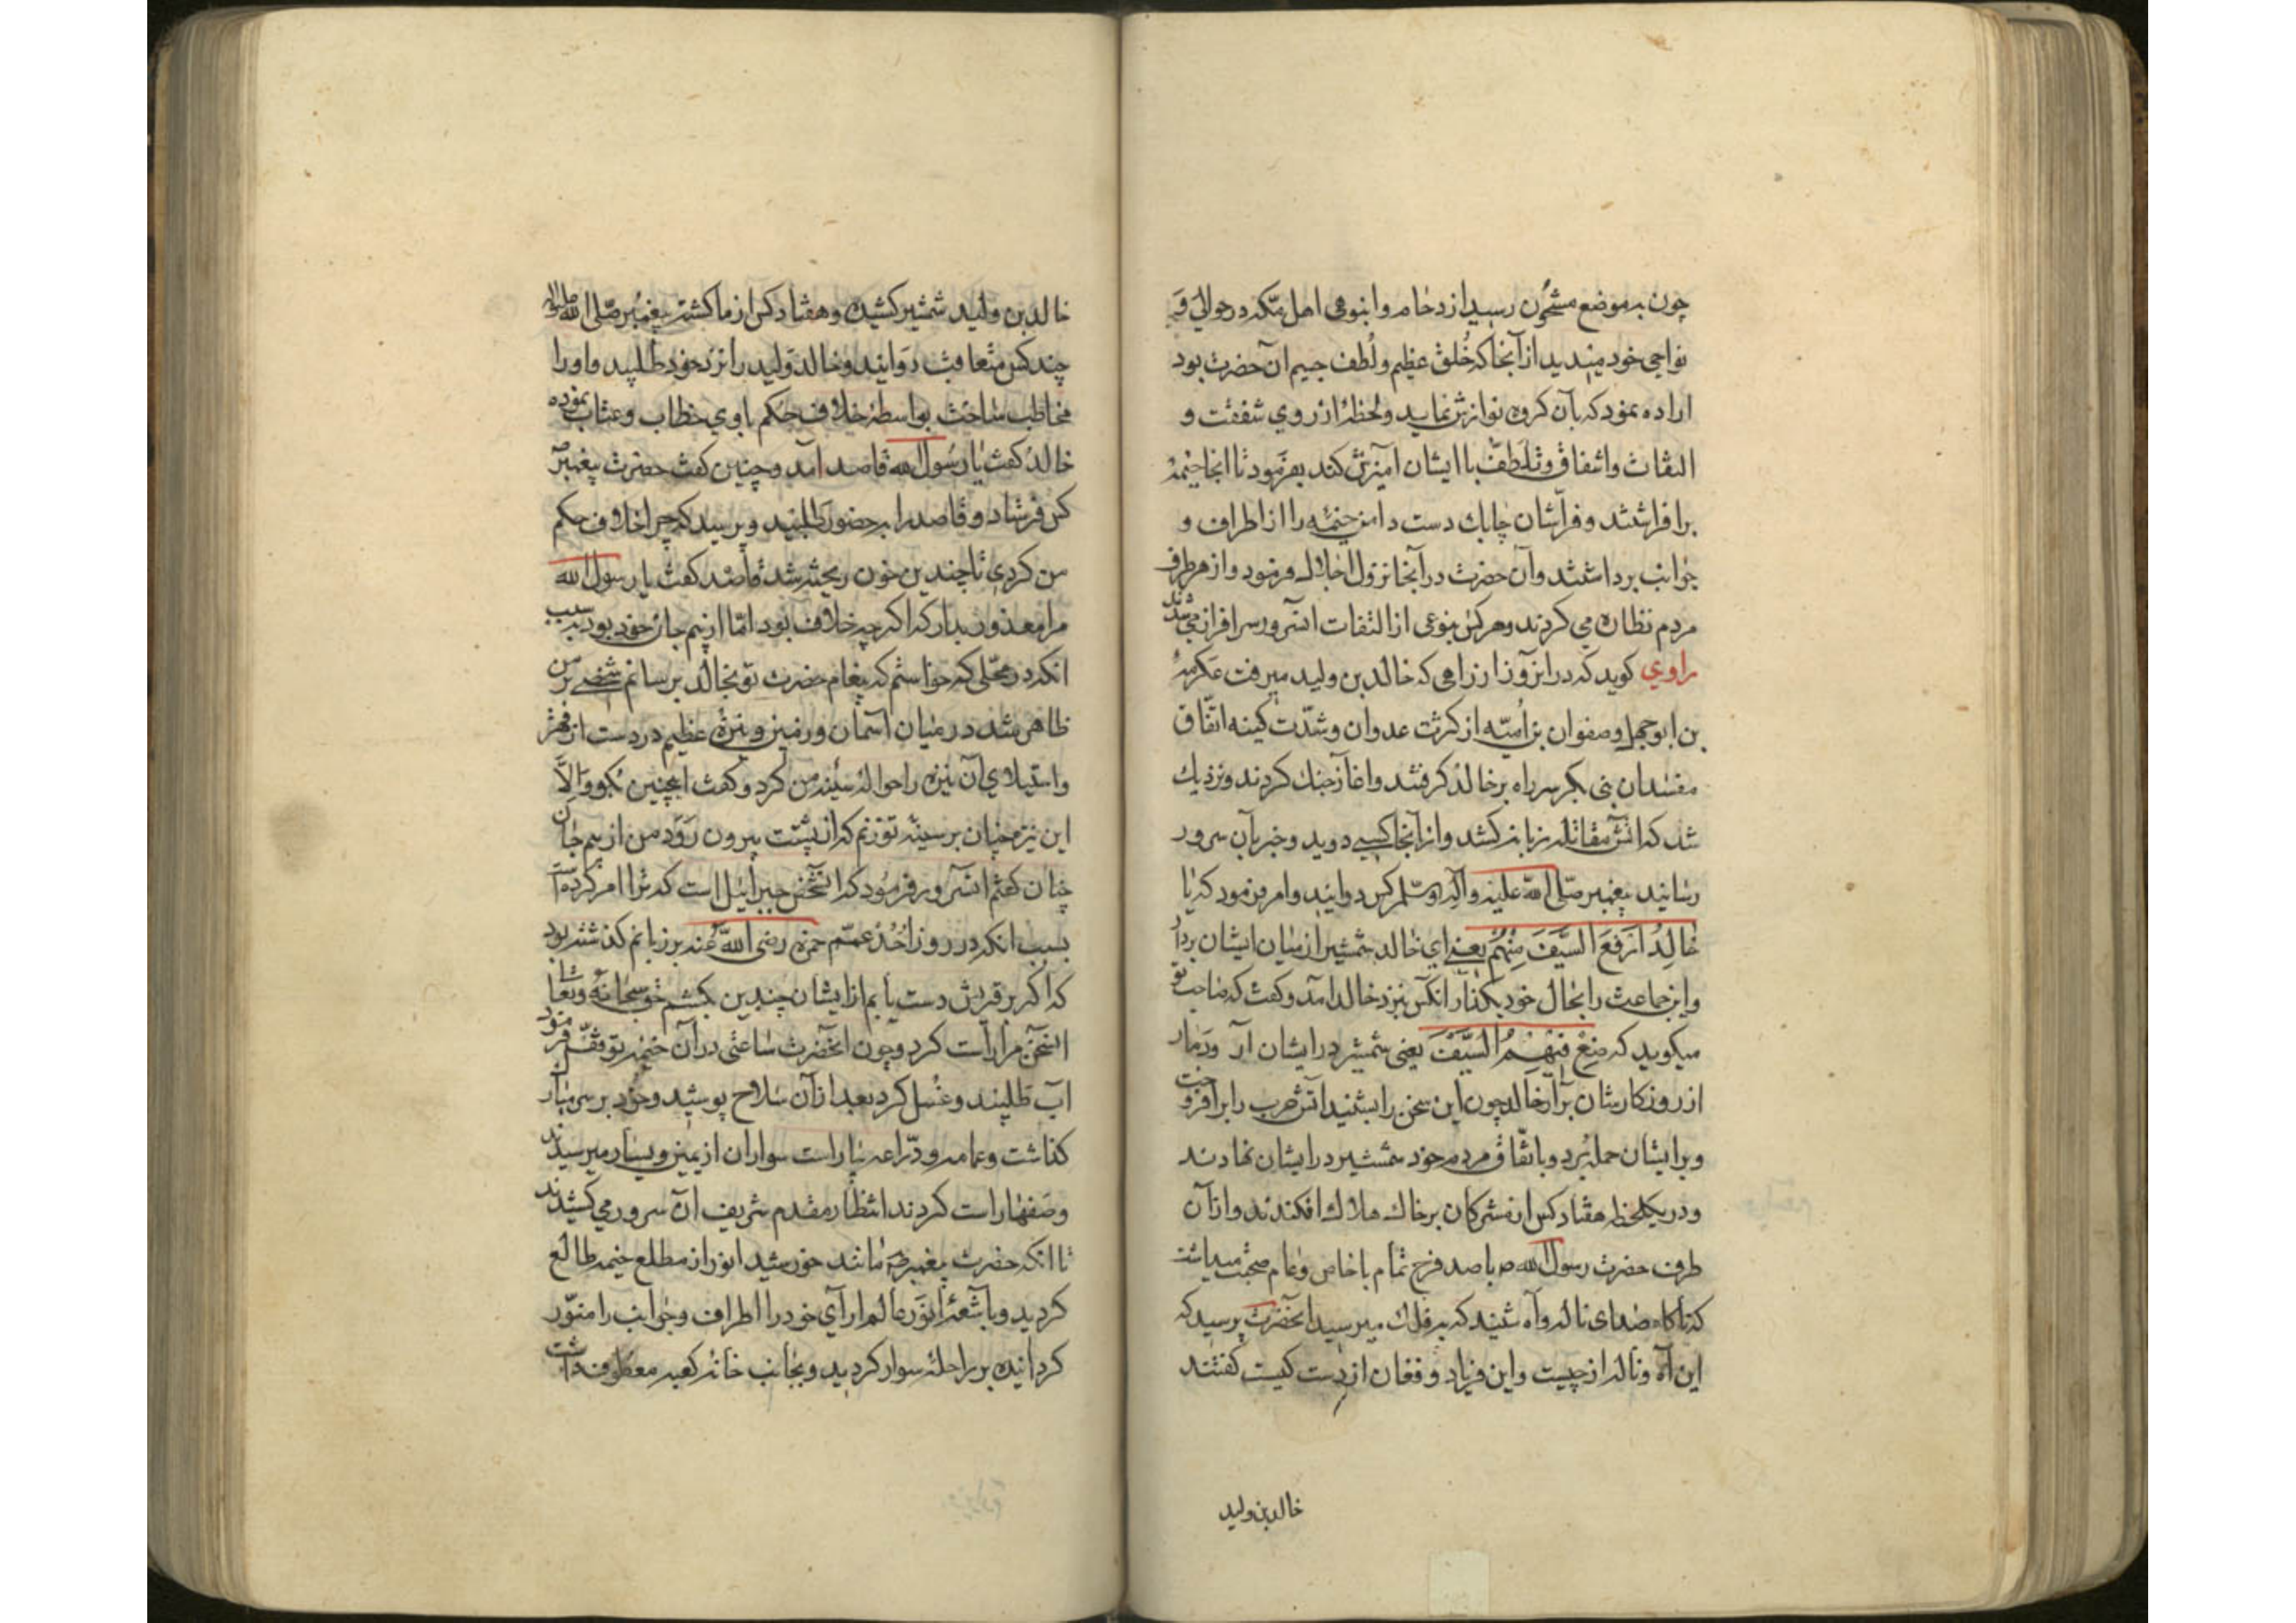 چون به موضع مشحون رسید ازدحام و انبوهی اهل مکه در حوالی و
نواحی خود میدید از آنجا که خُلق عظیم و لُطف جسیم آن حضرت بود
اراده نمود که بآن کروه نوازش نماید و لحظهٔ از روی شفقت و
التفات و اشفاق و تلطف با ایشان آمیزش کند بفرمود تا انجا خیمهٔ
برافراشتند و فراشان چابك دست دامن خیمه را از اطراف و
جوانب برداشتند و آن حضرت در آنجا نزول اجلال فرمود و از هر طرف
مردم نظاره می کردند و هر کس بنوعی از التفات انسرور سرافراز می شدند
راوی کوید که در انروز از راهی که خالد بن ولید میرفت عکرمهٔ
بن ابوجهل و صفوان بن اُمیّه از کثرت عدوان و شدّت کینه اتّفاق
مفسدان بنی بکر سر راه بر خالد کرفتند و اغاز جنك کردند و نزدیك
شد که اتش مقاتله زبانه کشد و از آنجا کسی دوید و خبر بآن سرور
رسانید پیغمبر صلّی الله علیه وآله وسلّم کس دوانید و امر فرمود که یا
خَالِدُ اَرفَعَ السَّیفَ مِنْهُم یعنی ای خالد شمشیر از میان ایشان بردار
و این جماعت را بحال خود بکذار انکس بنزد خالد امد و کفت که صاحب تو
میکوید که ضِعْ فیهِمُ السَّیفَ یعنی شمشیر در ایشان آر و دمار
از روزکارشان برآر خالد چون این سخن را بشنید اتش حرب را برافروخت
و بر ایشان حمله برد و باتّفاق مردم خود شمشیر در ایشان نهادند
و در یکلحظه هفتاد کس از مشرکان بر خاك هلاك افکندند و از آن
طرف حضرت رسول الله ص با صد فرح تمام با خاص و عام صحبت میداشت
که ناکاه صدای ناله و آه شنید که بر فلك میرسید انحضرت پرسید که
این آه و ناله از چیست و این فریاد و فغان از دست کیست کفتند
خالد بن ولید
خالد بن ولید شمشیر کشیده و هفتاد کس از ما کشته پیغمبر صلّی الله علیه وآله
چند کس متعاقب دوانید و خالد ولید را نزد خود طلبید و او را
مخاطب ساخت بواسطهٔ خلاف حکم باوی خطاب و عتاب نموده
خالد کفت یا رسول الله قاصد امد و چنین کفت حضرت پیغمبر ص
کس فرستاد و قاصد را بحضور طلبید و پرسید که چرا خلاف حکم
من کردی تا چندین خون ریخته شد قاصد کفت یا رسول الله
مرا معذور بدار که اکرچه خلاف بود امّا از بیم جان خود بود بسبب
انکه در محلّی که خواستم که پیغام حضرت تو بخالد برسانم شخصی بر من
ظاهر شد در میان آسمان و زمین و نیزهٔ عظیم در دست از قهر
و استیلای آن نیزه را حوالهٔ سینه من کرد و کفت اینچنین بکو و اِلاَّ
این نیزه چنان بر سینه تو زنم که از پشتت بیرون رَوَد من از بیم جان
چنان کفتم انسرور فرمود که انشخص جبرائیل است که ترا امر کرده است
بسبب انکه در روز اُحُد عمّم حمزه رضی الله عنه بر زبانم کذشته بود
که اکر بر قریش دست یابم از ایشان چندین بکشم حق سبحانه و تعالی
این سخن مرا راست کرد و چون انحضرت ساعتی در آن خیمه توقّف فرمود
آب طلبید و غسل کرد بعد از آن سلاح پوشید و خود بر سر مبارك
کذاشت و عمامه و درّاعه بیاراست سواران از یمین و یسار میرسیدند
و صفها راست کردند انتظار مقدم شریف آن سرور می کشیدند
تا انکه حضرت پیغمبر ص مانند خورشید انور از مطلع خیمه طالع
کردید و باشعهٔ انوَر عالم ارای خود را اطراف و جوانب را منوّر
کردانیده بر راحله سوار کردید و بجانب خانه کعبه معطوف داشت